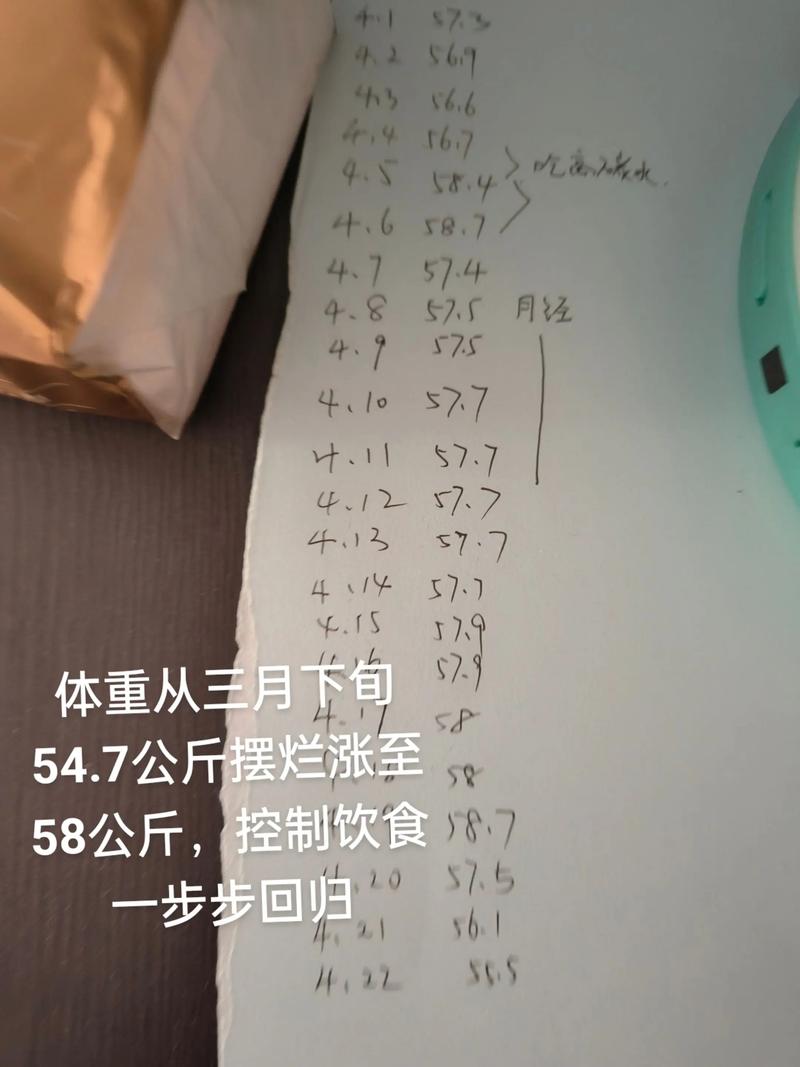 4.1 57.3
4.2 56.9
4.3 56.6
4.4 56.7
4.5 58.4 吃高碳水
4.6 58.7
4.7 57.4
4.8 57.5 月经
4.9 57.5
4.10 57.7
4.11 57.7
4.12 57.7
4.13 57.7
4.14 57.7
4.15 57.9
4.16 57.9
4.17 58
58
58.7
4.20 57.5
4.21 56.1
4.22 55.5
体重从三月下旬
54.7公斤摆烂涨至
58公斤，控制饮食
一步步回归